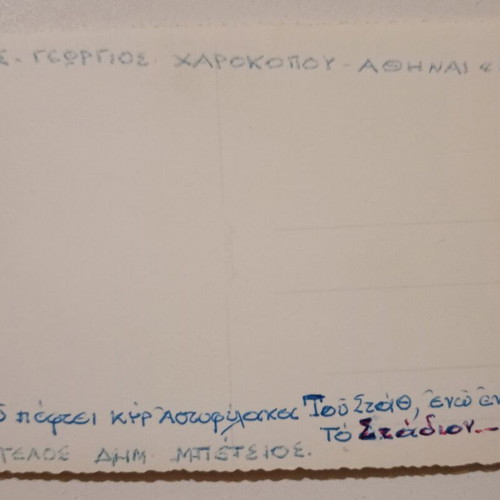 Σ. ΓΕΩΡΓΙΟΣ. ΧΑΡΟΚΟΠΟΥ - ΑΘΗΝΑΙ
πέφτει κύρ Ἀστυφύλακα Τοῦ Σταθ, ἐνῶ ἐν
Τὸ Στάδιον.—
ΓΕΛΟΣ ΔΗΜ. ΜΠΕΤΣΙΟΣ.